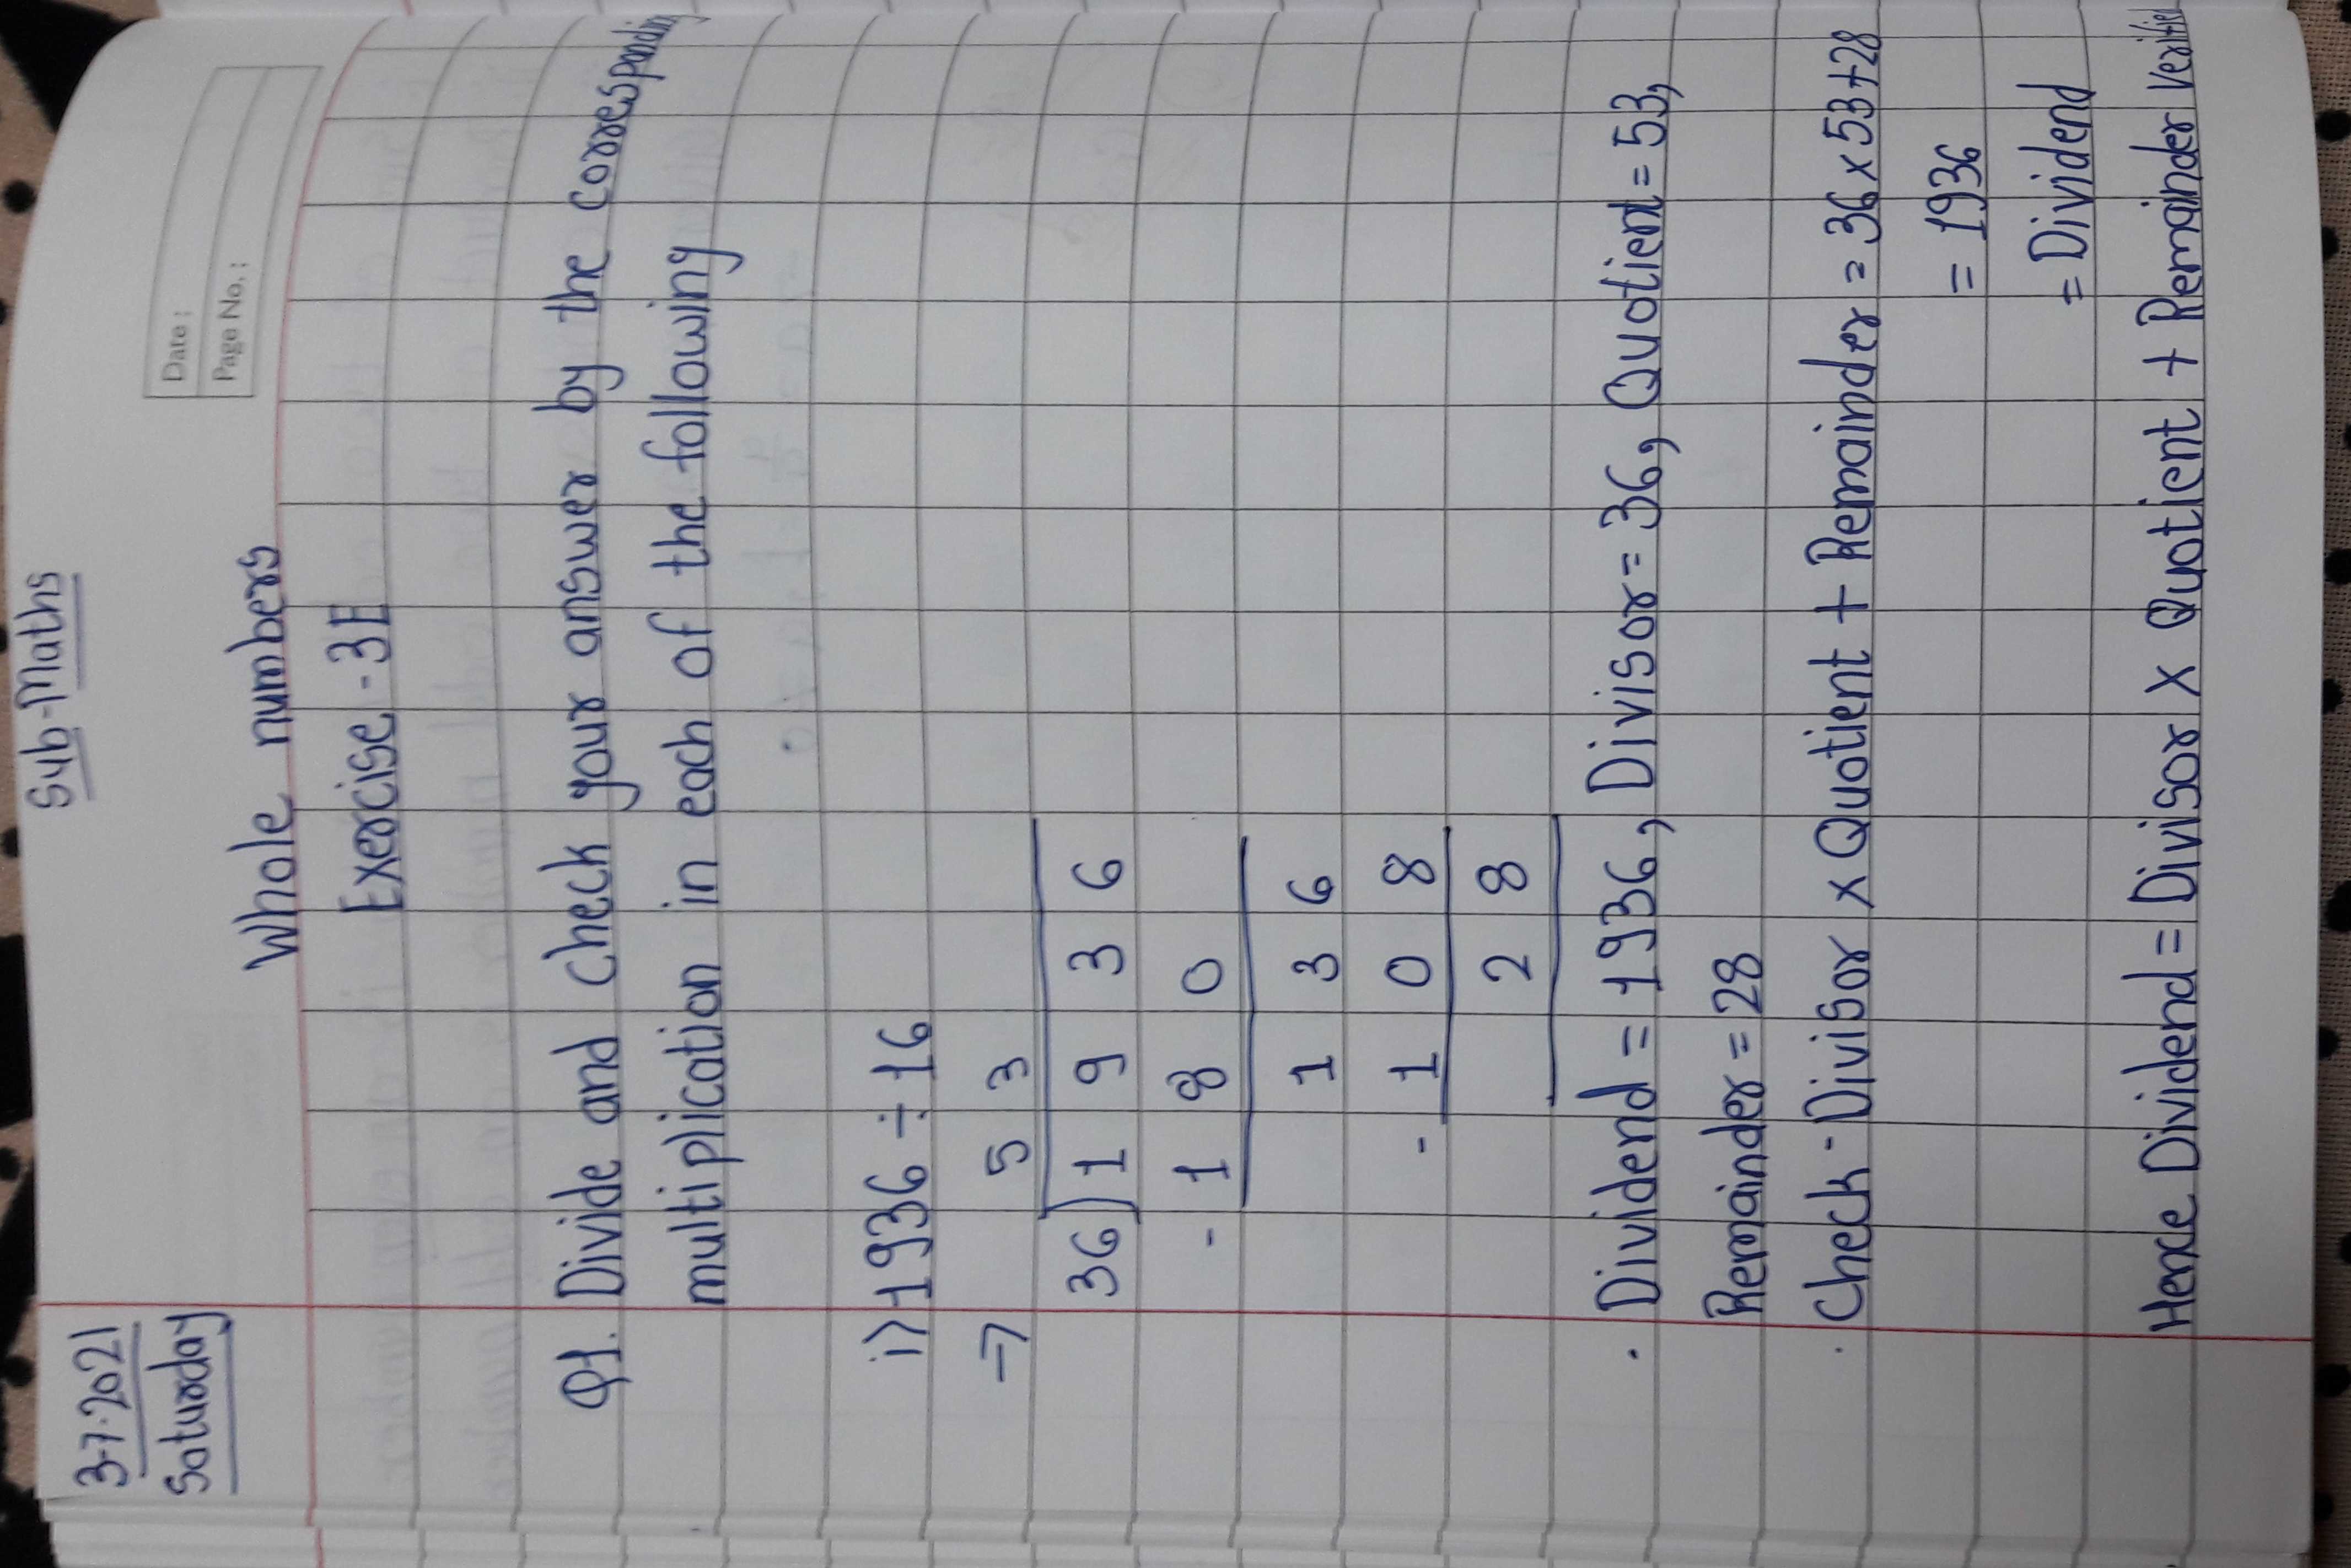 3-7-2021
Saturday
Sub-Maths
Date :
Page No. :
Whole numbers
Exercise - 3E
Q1. Divide and check your answer by the corresponding
multiplication in each of the following
i) 1936 ÷ 16
→ 5 3
36)1 9 3 6
- 1 8 0
1 3 6
- 1 0 8
2 8
. Dividend = 1936, Divisor = 36, Quotient = 53,
Remainder = 28
. Check - Divisor x Quotient + Remainder = 36 x 53 + 28
= 1936
= Dividend
Hence Dividend = Divisor x Quotient + Remainder Verified